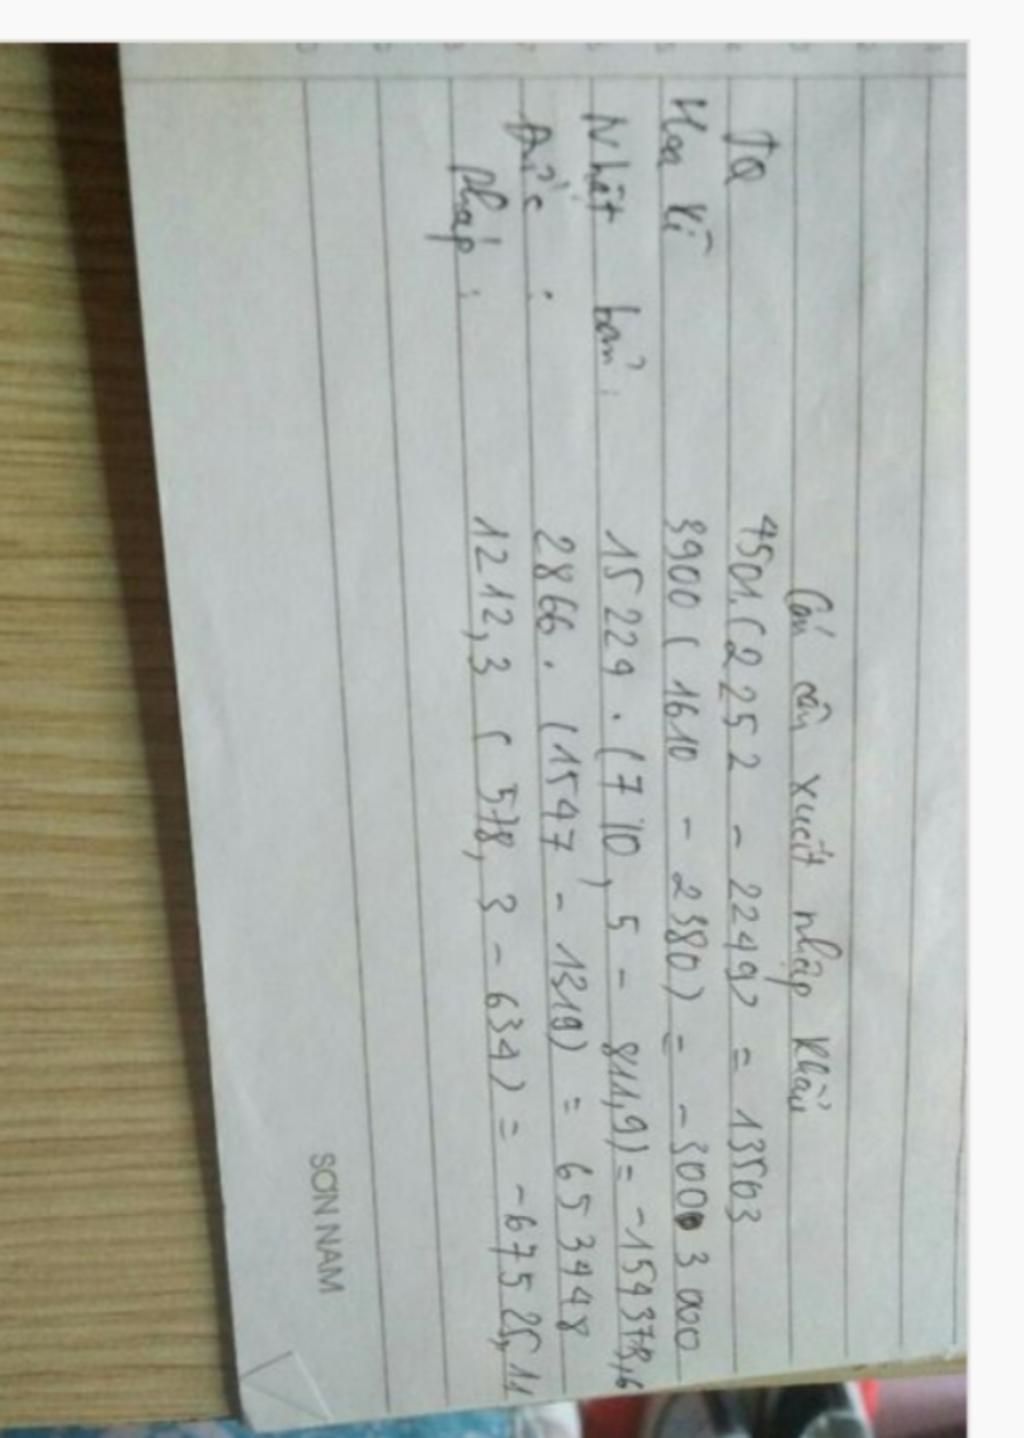 Cán cân xuất nhập khẩu
TQ 4501.(2252 - 2249) = 13503
Hoa Kì 3900 (1610 - 2380) = -3003000
Nhật bản: 15229.(710,5 - 811,9) = -154378,6
Đức: 2866.(1547 - 1319) = 653448
Pháp: 1212,3 (578,3 - 634) = -67525,11
SƠN NAM